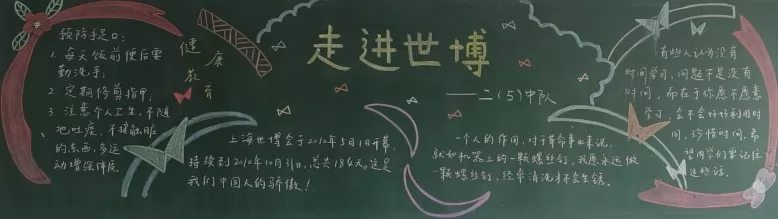 走进世博
——二(5)中队
健康教育
预防手足口:
1. 每天饭前便后要
勤洗手;
2. 定期修剪指甲;
3. 注意个人卫生,不随
地吐痰,不接触脏
的东西,多运
动增强体质
上海世博会于2010年5月1日开幕,
持续到2010年10月31日,总共184天。这是
我们中国人的骄傲!
一个人的作用,对于革命事业来说,
就如机器上的一颗螺丝钉,我愿永远做
一颗螺丝钉,经常清洗才不会生锈。
有些人认为没有
时间学习,问题不是没有
时间,而在于你愿不愿意
学习,会不会好好利用时
间,珍惜时间,希
望同学们要记住
这些话。